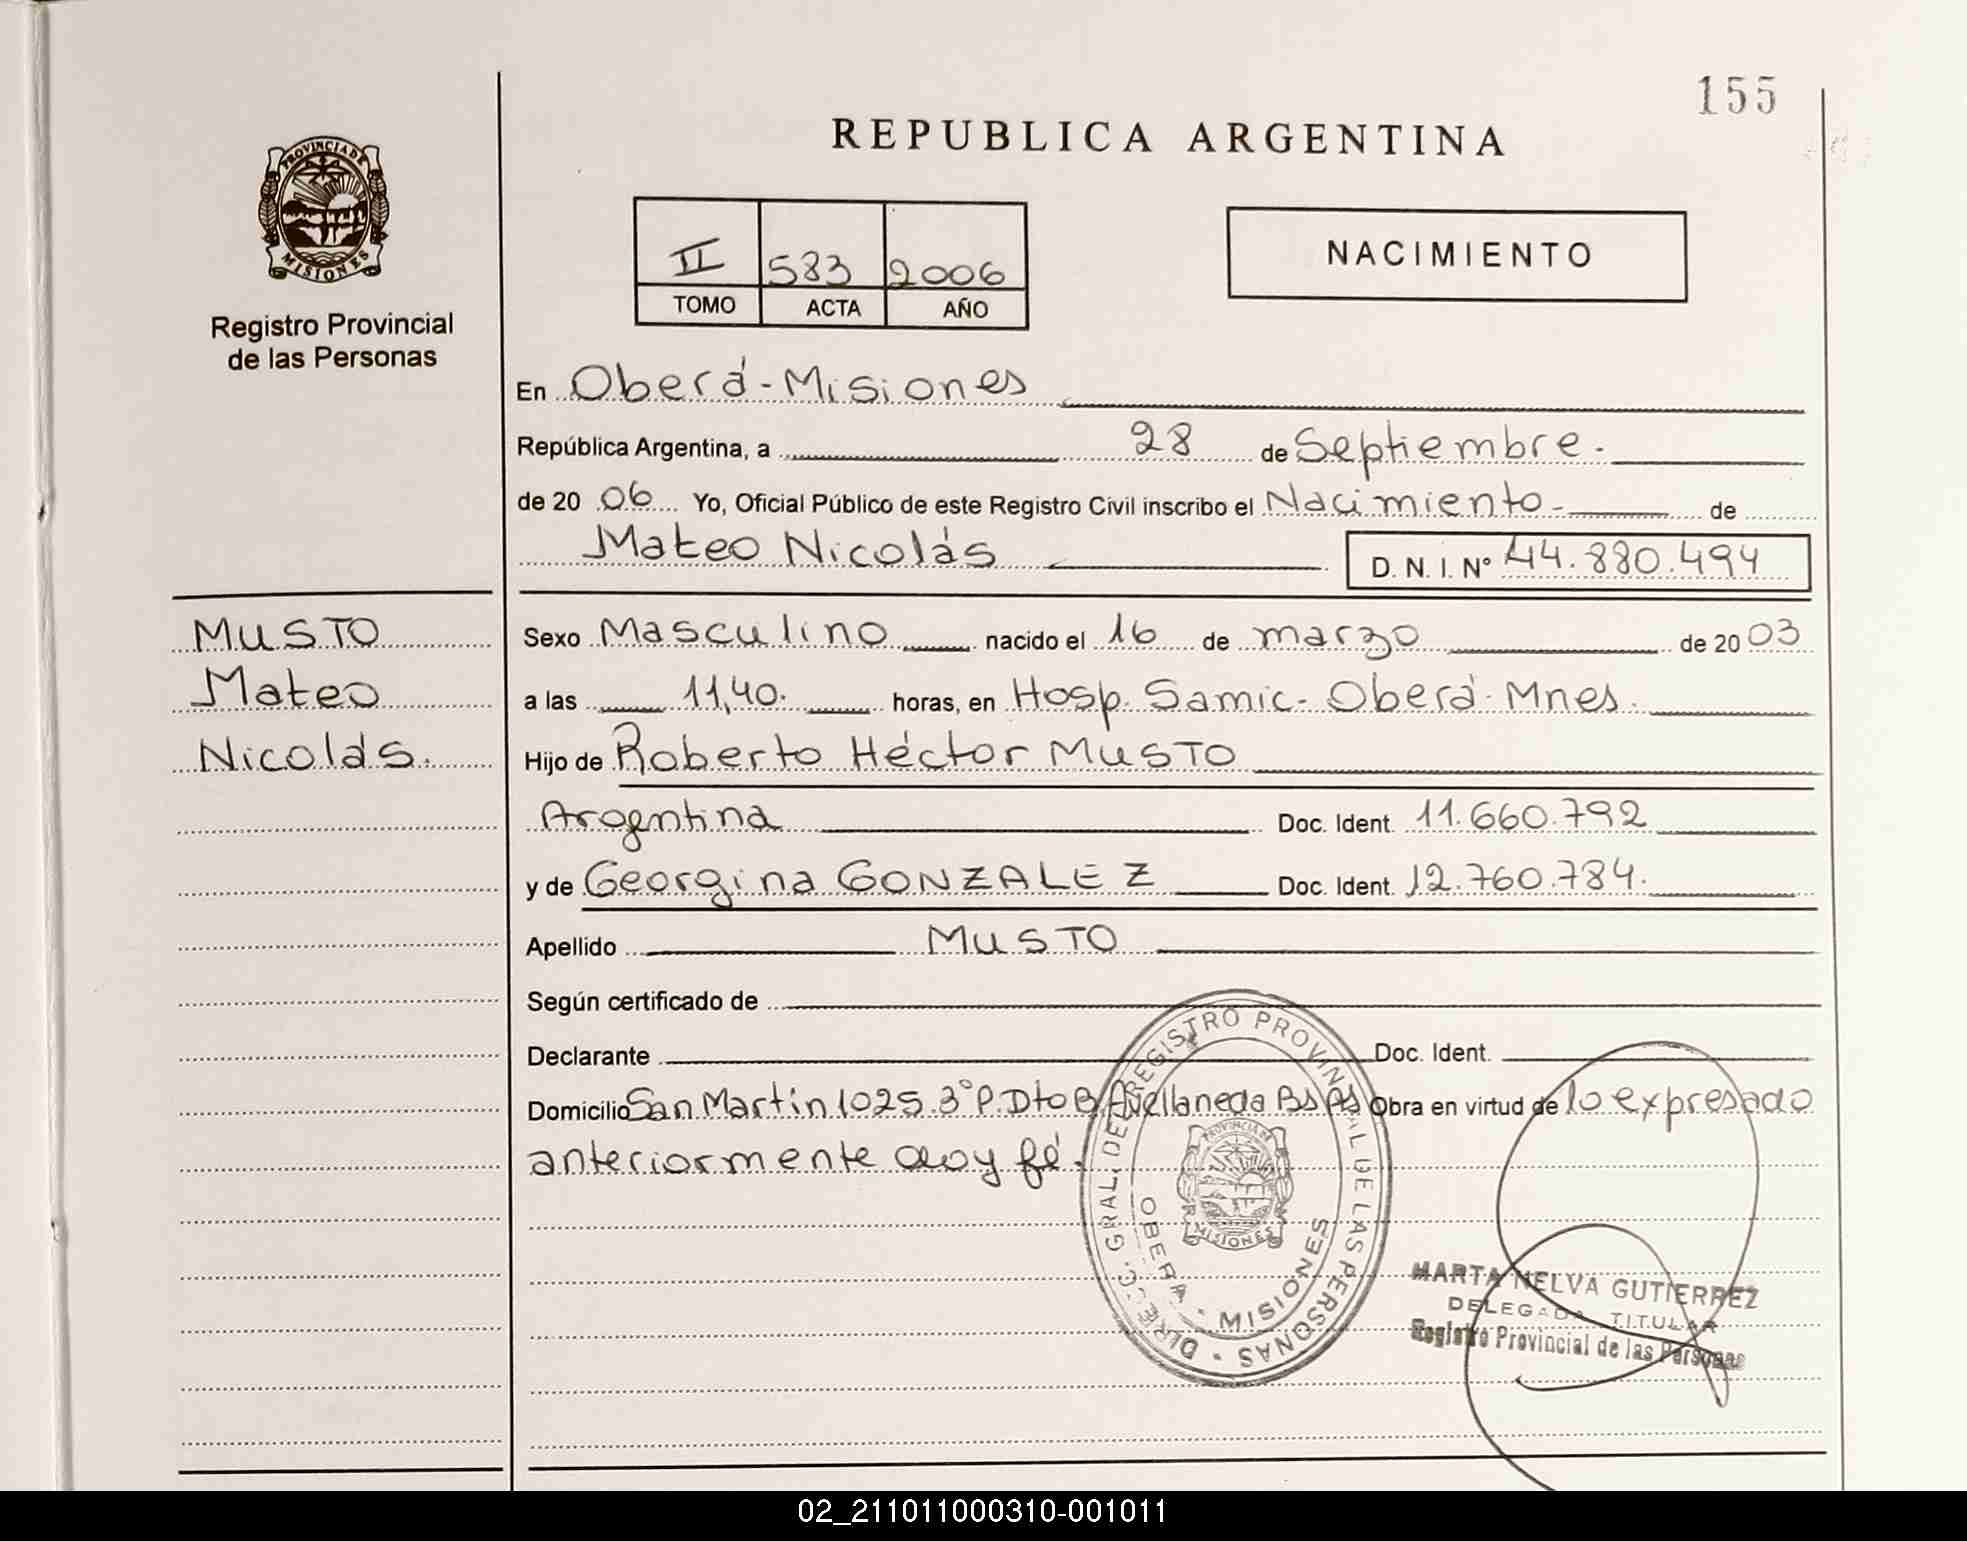 155
REPUBLICA ARGENTINA
PROVINCIA DE
MISIONES
Registro Provincial
de las Personas
II 583 2006
TOMO ACTA AÑO
NACIMIENTO
En Oberá - Misiones
República Argentina, a 28 de Septiembre.
de 20 06 Yo, Oficial Público de este Registro Civil inscribo el Nacimiento - de
Mateo Nicolás D. N. I. N° 44.880.494
MUSTO
Mateo
Nicolás.
Sexo Masculino nacido el 16 de marzo de 20 03
a las 11,40. horas, en Hosp. Samic - Oberá - Mnes.
Hijo de Roberto Héctor MUSTO
Argentina Doc. Ident. 11.660.792
y de Georgina GONZALEZ Doc. Ident. 12.760.784.
Apellido MUSTO
Según certificado de
Declarante Doc. Ident.
Domicilio San Martín 1025. 3° P. Dto B. Avellaneda Bs As Obra en virtud de lo expresado
anteriormente doy fé.
DIRECC. GRAL. DE REGISTRO PROVINCIAL DE LAS PERSONAS
PROVINCIA DE
MISIONES
OBERA - MISIONES
MARTA NELVA GUTIERREZ
DELEGADA TITULAR
Registro Provincial de las Personas
02_211011000310-001011